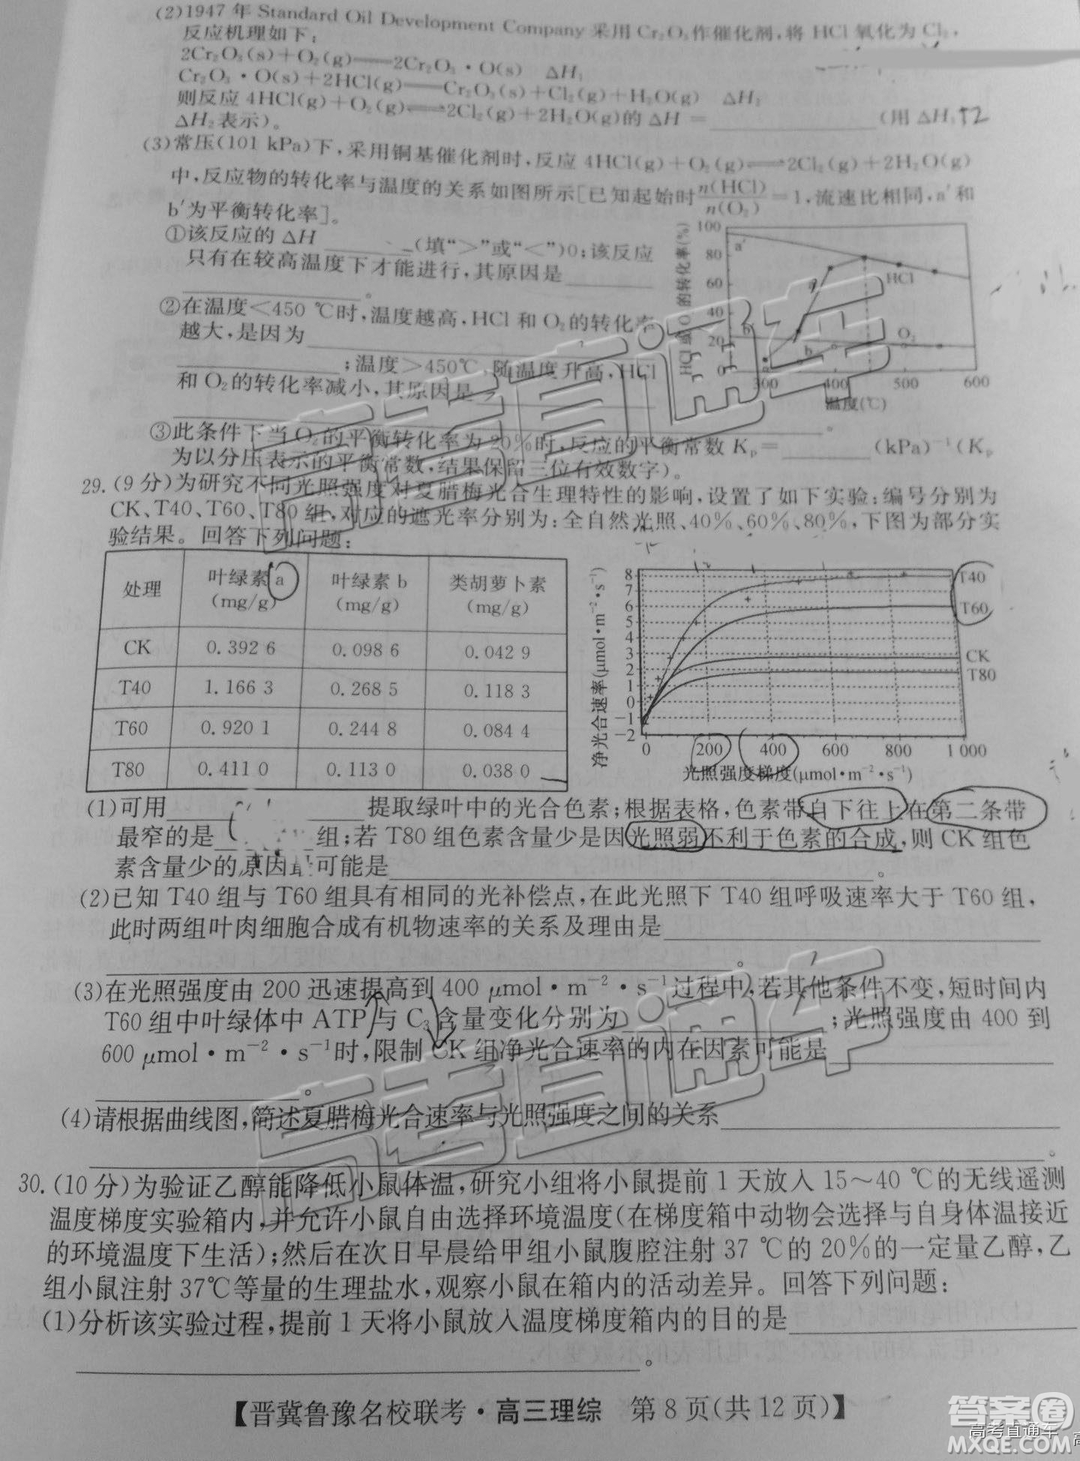 (2)1947 年 Standard Oil Development Company 采用 Cr₂O₃作催化剂,将 HCl 氧化为 Cl₂,
反应机理如下:
2Cr₂O₃(s)+O₂(g)——2Cr₂O₃·O(s) ΔH₁
Cr₂O₃·O(s)+2HCl(g)——Cr₂O₃(s)+Cl₂(g)+H₂O(g) ΔH₂
则反应 4HCl(g)+O₂(g)⇌2Cl₂(g)+2H₂O(g)的 ΔH=________(用 ΔH₁
ΔH₂表示)。
(3)常压(101 kPa)下,采用铜基催化剂时,反应 4HCl(g)+O₂(g)⇌2Cl₂(g)+2H₂O(g)
中,反应物的转化率与温度的关系如图所示[已知起始时n(HCl)/n(O₂)=1,流速比相同,a′和
b′为平衡转化率]。
①该反应的 ΔH ________(填“>”或“<”)0;该反应
只有在较高温度下才能进行,其原因是________
________。
②在温度<450 ℃时,温度越高,HCl 和 O₂的转化率
越大,是因为________
________;温度>450℃,随温度升高,HCl
和 O₂的转化率减小,其原因是________
________。
HCl或O₂的转化率(%)
100
80
60
40
20
0
a′
a
b′
b
HCl
O₂
300 400 500 600
温度(℃)
③此条件下当 O₂的平衡转化率为 20%时,反应的平衡常数 Kₚ=________(kPa)⁻¹(Kₚ
为以分压表示的平衡常数,结果保留三位有效数字)。
29.(9 分)为研究不同光照强度对夏腊梅光合生理特性的影响,设置了如下实验:编号分别为
CK、T40、T60、T80 组,对应的遮光率分别为:全自然光照、40%、60%、80%,下图为部分实
验结果。回答下列问题:
处理 叶绿素 a (mg/g) 叶绿素 b (mg/g) 类胡萝卜素 (mg/g)
CK 0.392 6 0.098 6 0.042 9
T40 1.166 3 0.268 5 0.118 3
T60 0.920 1 0.244 8 0.084 4
T80 0.411 0 0.113 0 0.038 0
净光合速率(μmol·m⁻²·s⁻¹)
8
7
6
5
4
3
2
1
0
−1
−2
T40
T60
CK
T80
0 200 400 600 800 1 000
光照强度梯度(μmol·m⁻²·s⁻¹)
(1)可用________提取绿叶中的光合色素;根据表格,色素带自下往上在第二条带
最窄的是________组;若 T80 组色素含量少是因光照弱不利于色素的合成,则 CK 组色
素含量少的原因可能是________。
(2)已知 T40 组与 T60 组具有相同的光补偿点,在此光照下 T40 组呼吸速率大于 T60 组,
此时两组叶肉细胞合成有机物速率的关系及理由是________
________。
(3)在光照强度由 200 迅速提高到 400 μmol·m⁻²·s⁻¹过程中,若其他条件不变,短时间内
T60 组中叶绿体中 ATP 与 C₃ 含量变化分别为________;光照强度由 400 到
600 μmol·m⁻²·s⁻¹时,限制 CK 组净光合速率的内在因素可能是________
________。
(4)请根据曲线图,简述夏腊梅光合速率与光照强度之间的关系________
________。
30.(10 分)为验证乙醇能降低小鼠体温,研究小组将小鼠提前 1 天放入 15~40 ℃的无线遥测
温度梯度实验箱内,并允许小鼠自由选择环境温度(在梯度箱中动物会选择与自身体温接近
的环境温度下生活);然后在次日早晨给甲组小鼠腹腔注射 37 ℃的 20%的一定量乙醇,乙
组小鼠注射 37℃等量的生理盐水,观察小鼠在箱内的活动差异。回答下列问题:
(1)分析该实验过程,提前 1 天将小鼠放入温度梯度箱内的目的是________
________。
【晋冀鲁豫名校联考·高三理综 第 8 页(共 12 页)】
高考直通车
高考直通车
答案圈
高考直通车
MXQE.COM